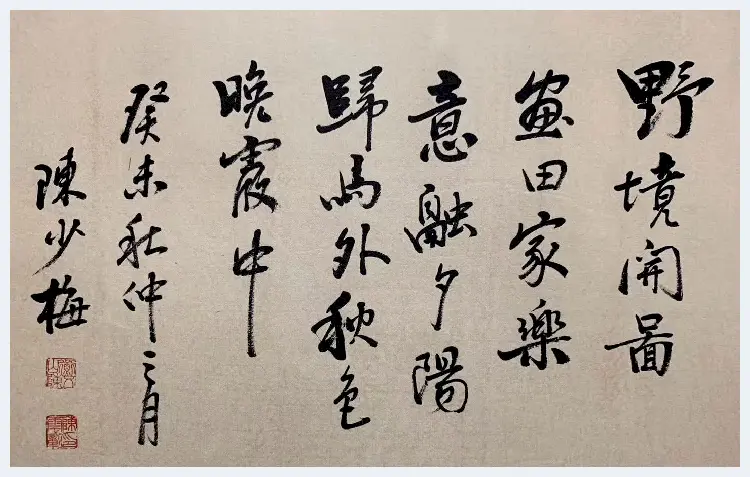 野境開圖
畫田家樂
意融夕陽
歸鳥外秋色
晚霞中
癸未秋仲之月
陳少梅